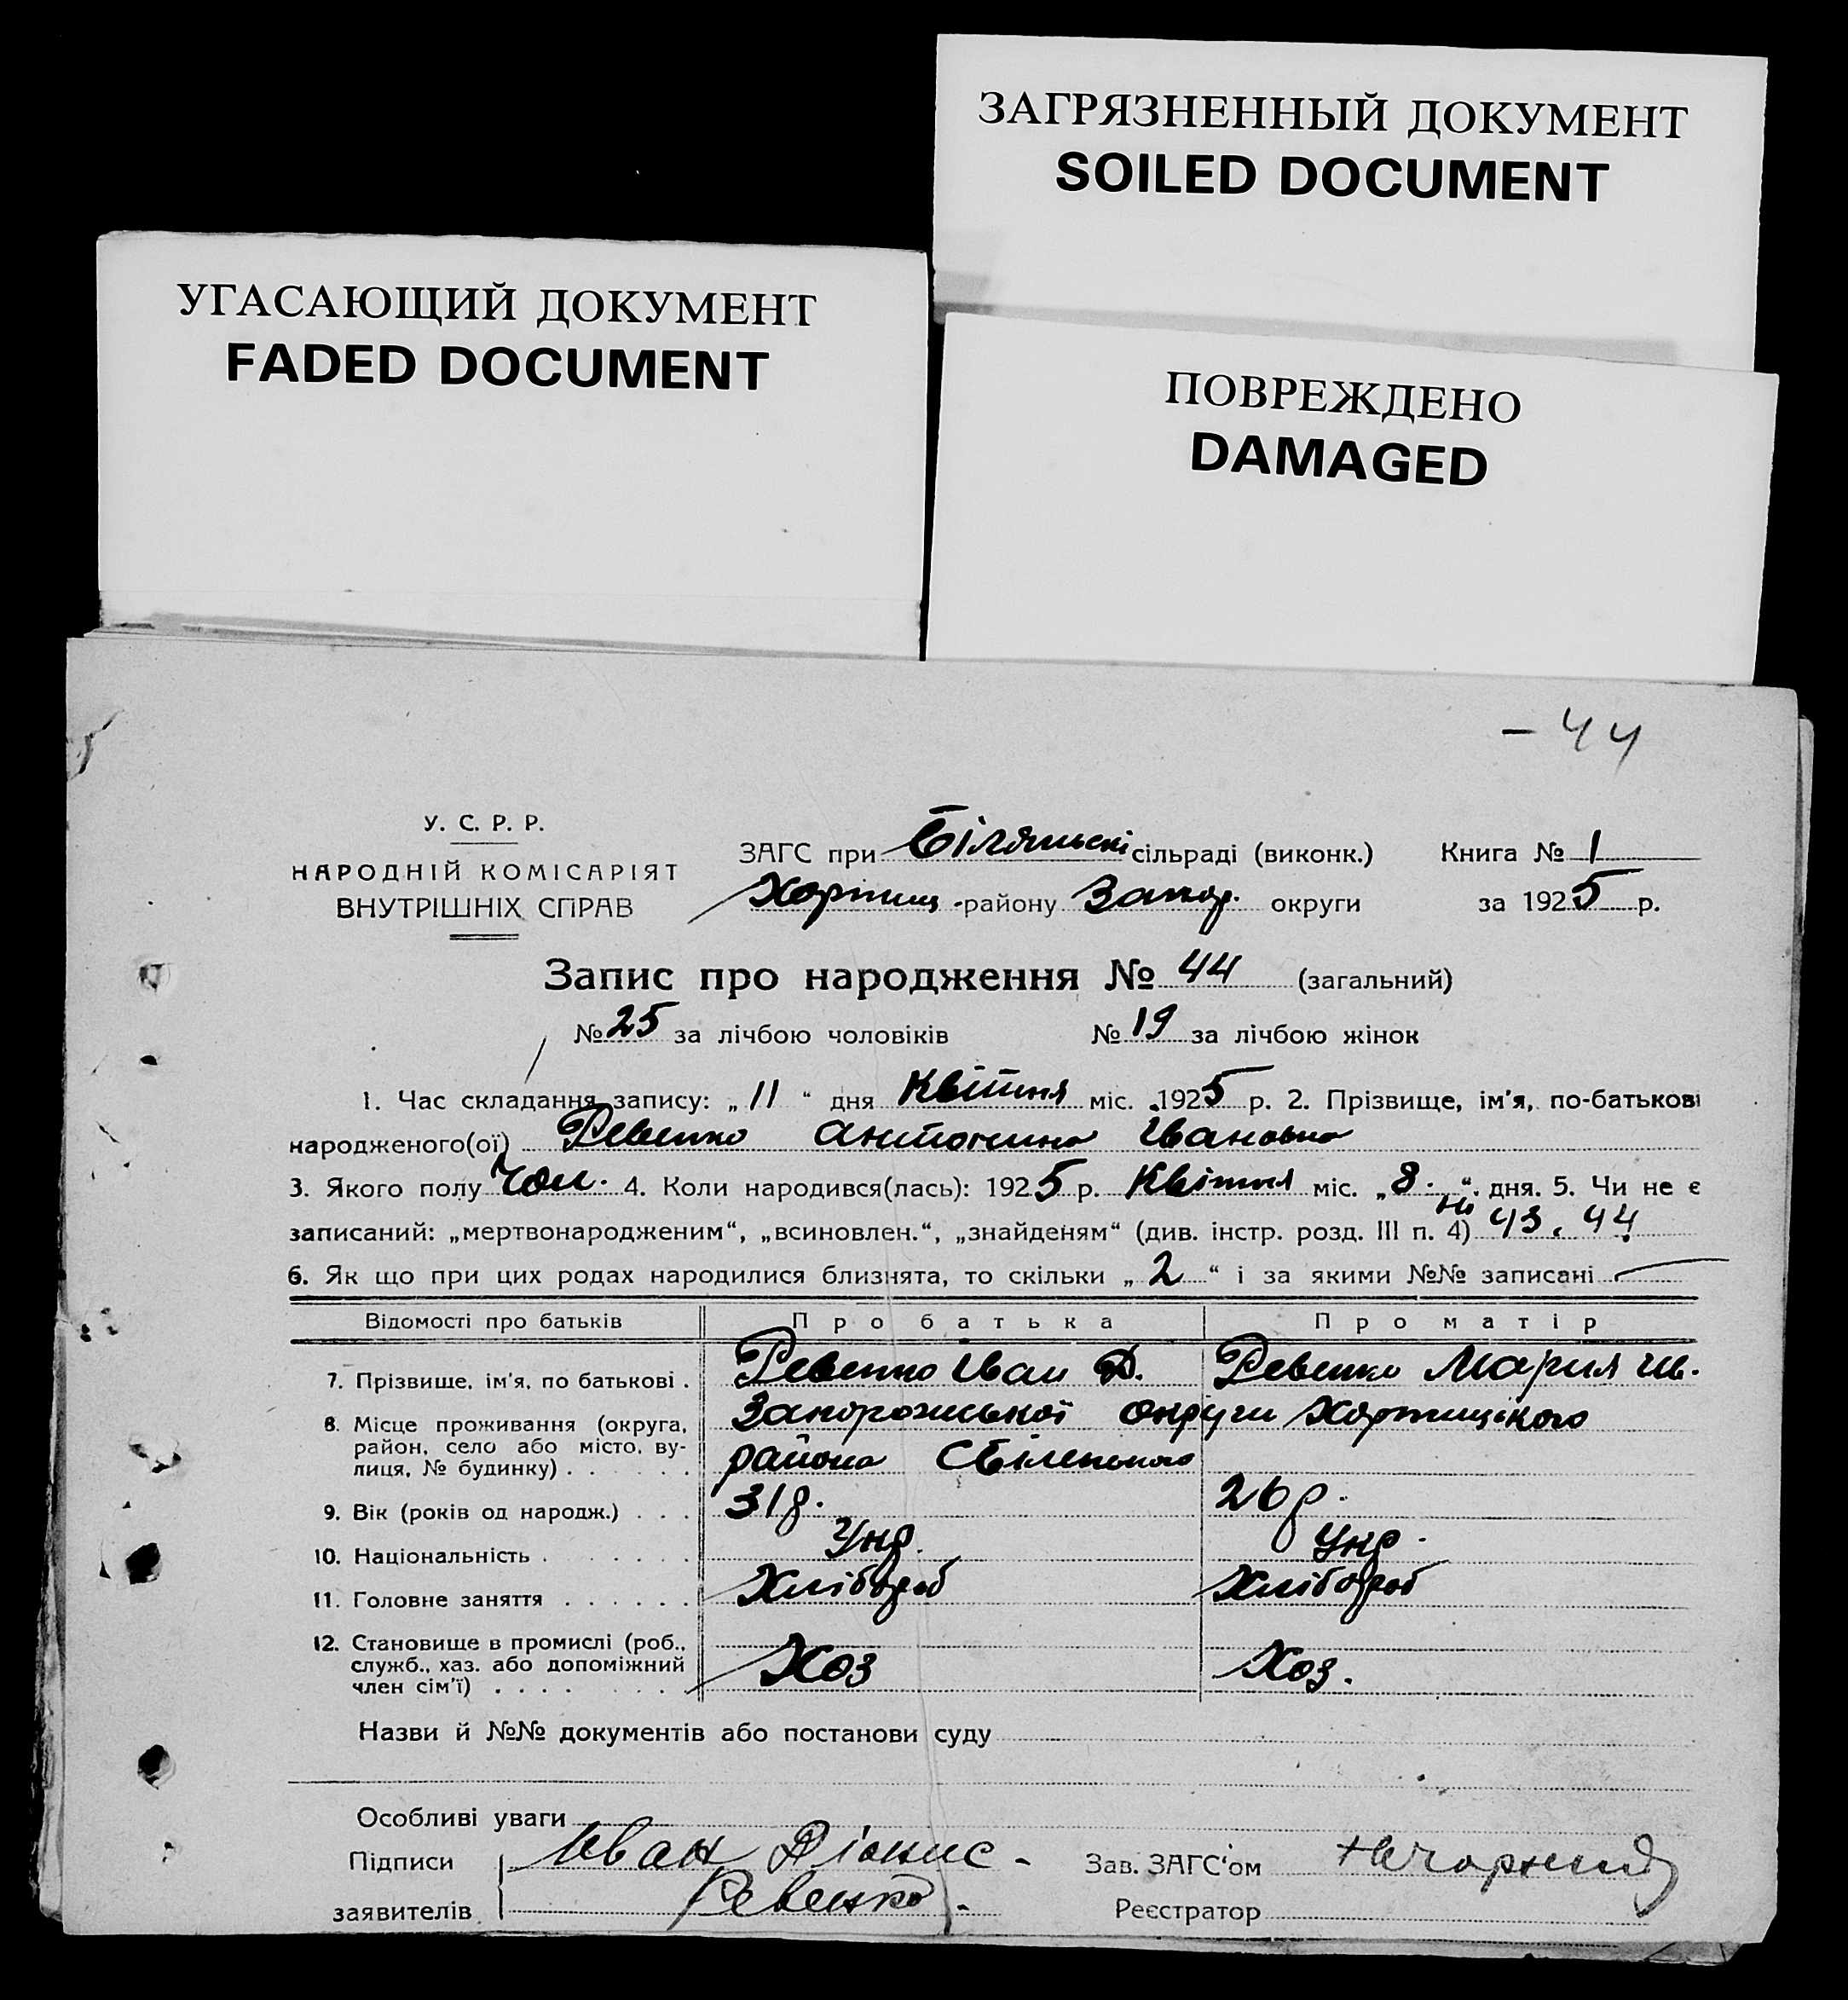 ЗАГРЯЗНЕННЫЙ ДОКУМЕНТ
SOILED DOCUMENT
УГАСАЮЩИЙ ДОКУМЕНТ
FADED DOCUMENT
ПОВРЕЖДЕНО
DAMAGED
– 44
У. С. Р. Р.
НАРОДНІЙ КОМІСАРІЯТ
ВНУТРІШНІХ СПРАВ
ЗАГС при сільраді (виконк.) Книга № 1
Хортиц. району Запор. округи за 1925 р.
Запис про народження № 44 (загальний)
№ 25 за лічбою чоловіків № 19 за лічбою жінок
1. Час складання запису: „ 11 “ дня Квітня міс. 1925 р. 2. Прізвище, ім'я, по-батькові
народженого(ої) Ревенко Антонина Івановна
3. Якого полу Чол. 4. Коли народився(лась): 1925 р. Квітня міс. „ 8. “ дня. 5. Чи не є
записаний: „мертвонародженим“, „всиновлен.“, „знайденям“ (див. інстр. розд. III п. 4) Ні 43. 44
6. Як що при цих родах народилися близнята, то скільки „ 2 “ і за якими №№ записані
Відомості про батьків Про батька Про матір
7. Прізвище, ім'я, по батькові . Ревенко Іван Д. Ревенко Мария
8. Місце проживання (округа, Запорожської округи Хортицького
район, село або місто, ву-
лиця, № будинку) . . . . . . района
9. Вік (років од народж.) . . . 31 р. 26 р.
10. Національність . . . . . . Укр. Укр.
11. Головне заняття . . . . . . Хлібороб Хлібороб
12. Становище в промислі (роб.,
служб., хаз. або допоміжний Хоз Хоз.
член сім'ї) . . . . . . .
Назви й №№ документів або постанови суду
Особливі уваги
Підписи Иван Діонис- Зав. ЗАГС'ом
заявителів Ревенко. Реєстратор